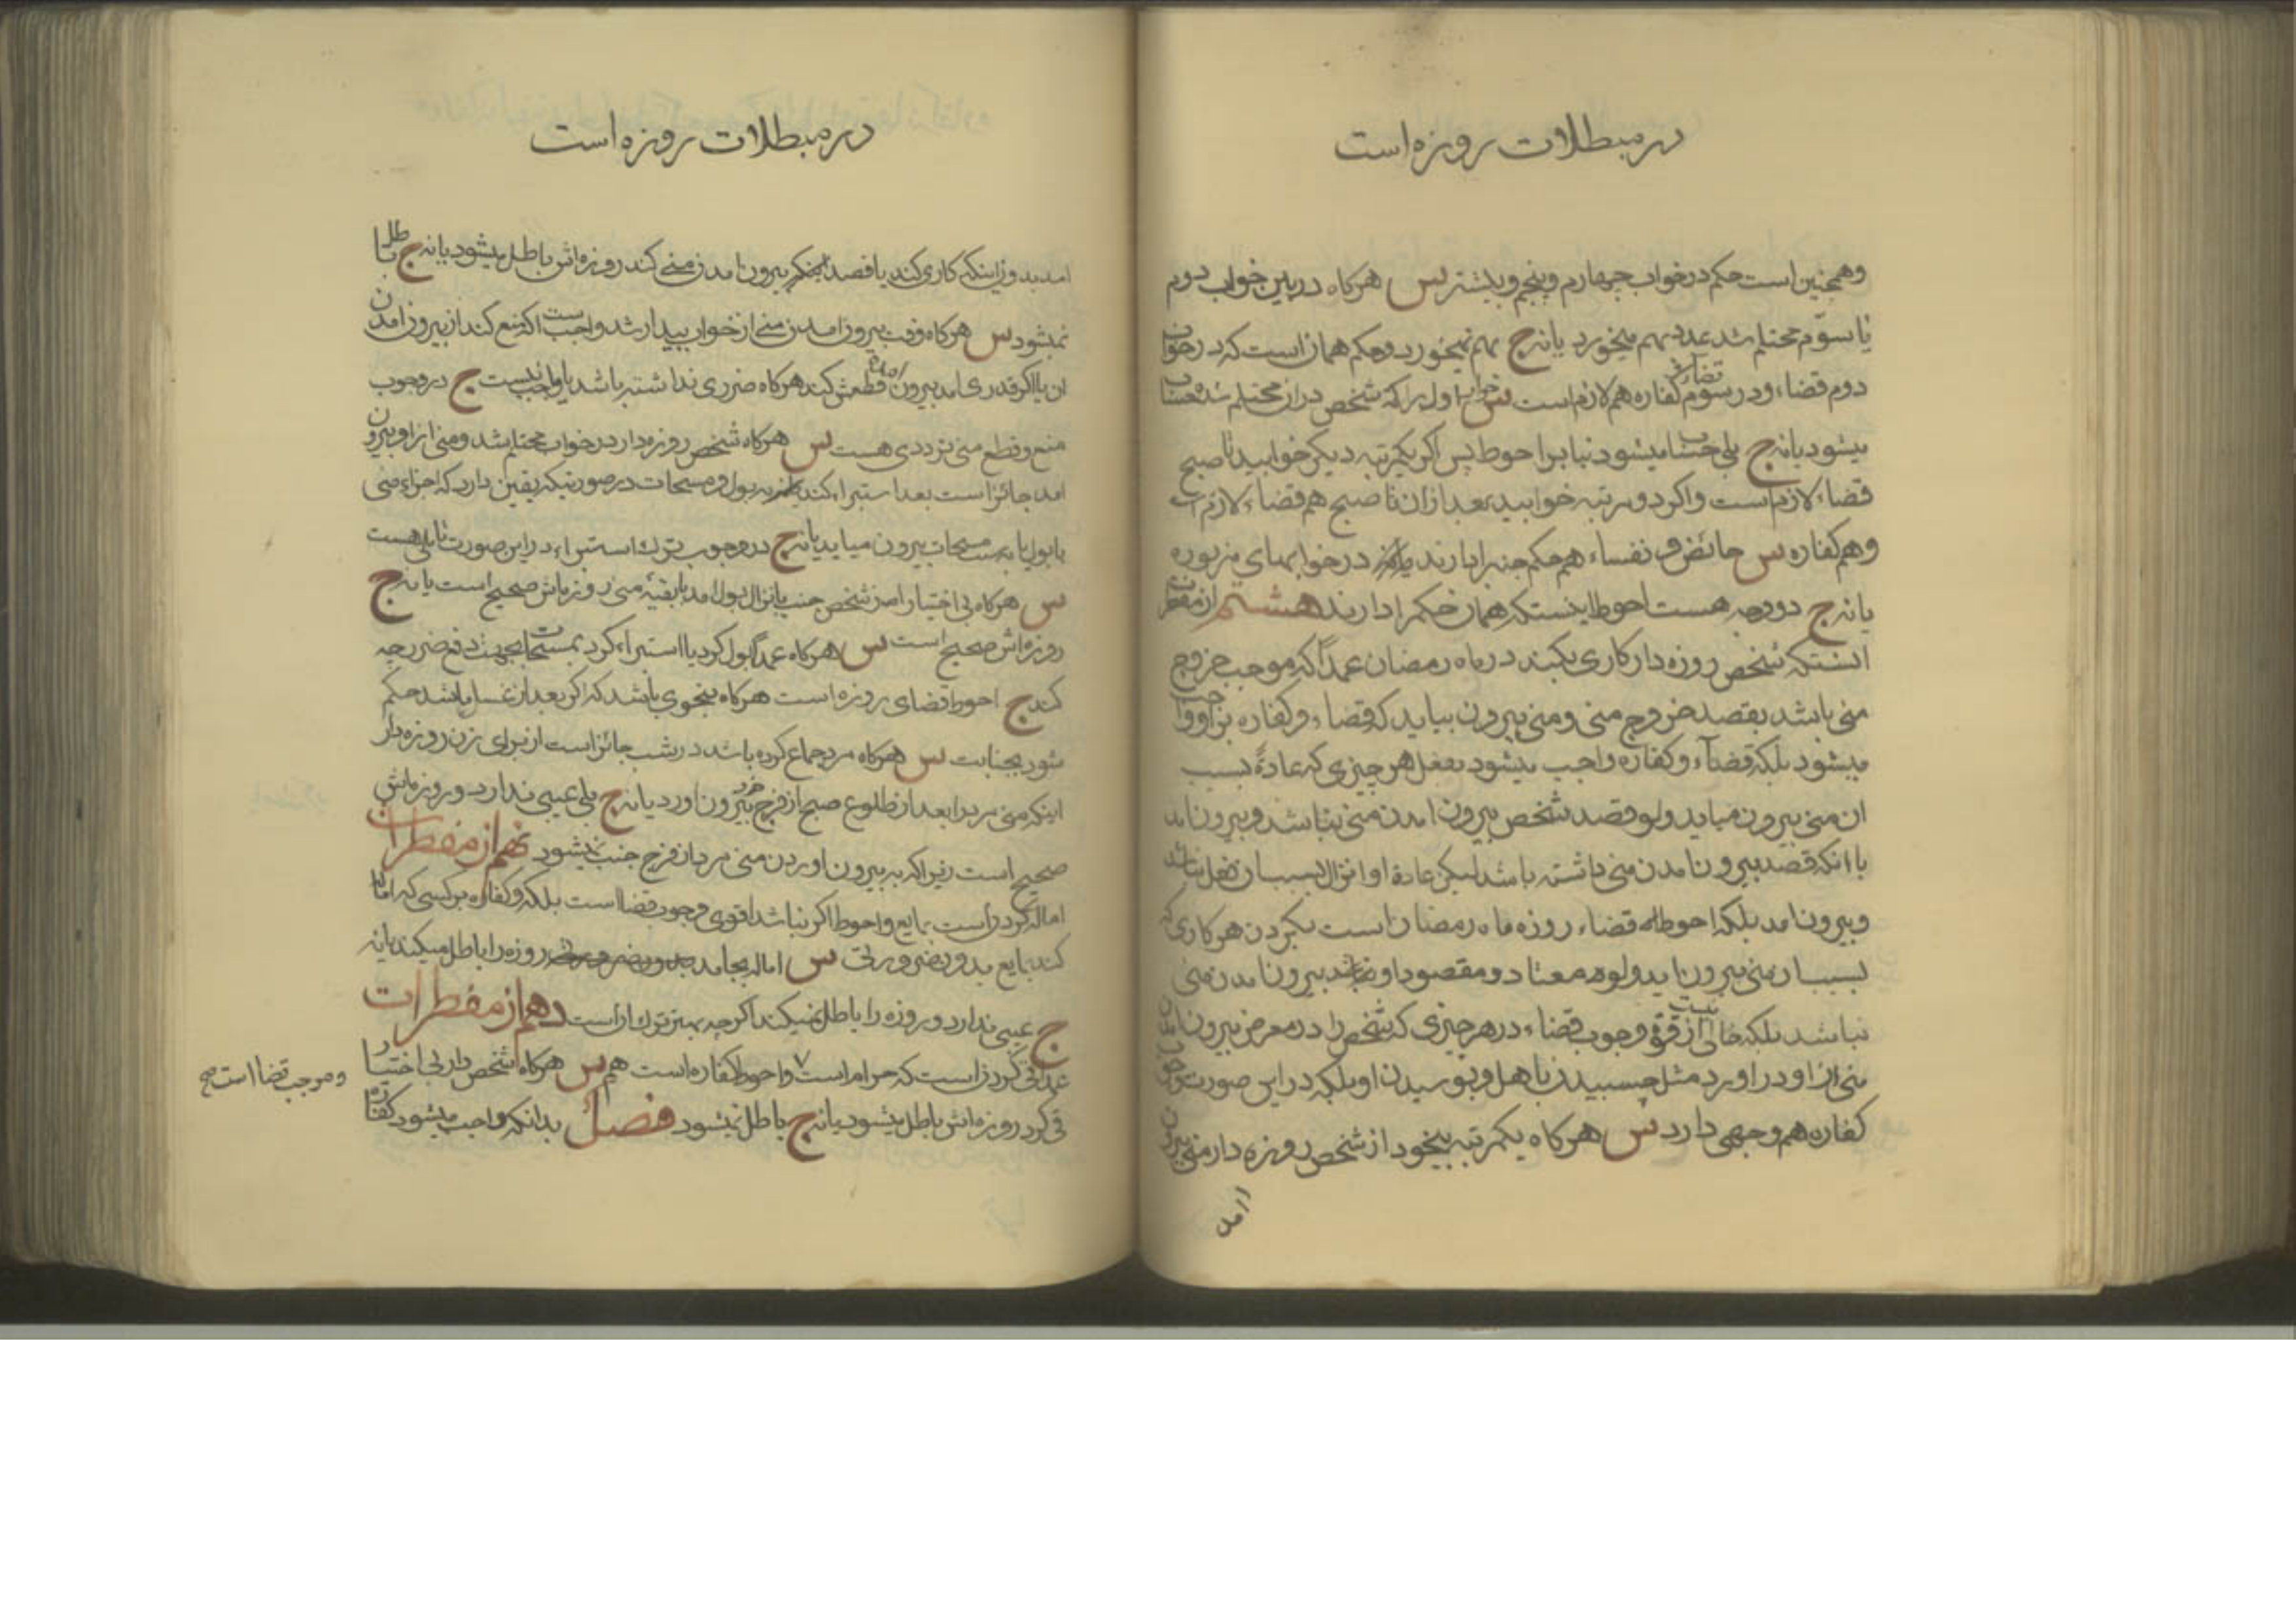 در مبطلات روزه است
وهمچنین است حکم در خواب چهارم و پنجم و بیشتر س هرکاه در بین خواب دوم
یا سوم محتلم شد عدد بهم میخورد یا نه ج بهم نمیخورد و حکم همان است که در خواب
دوم قضاء و در سوم قضا و کفاره هم لازم است س خواب اول را که شخص در ان محتلم شده حساب
میشود یا نه ج بلی حساب میشود بنابر احوط پس اکر یکمرتبه دیکر خوابید تا صبح
قضاء لازم است واکر دو مرتبه خوابید بعد از ان تا صبح هم قضاء لازم است
وهم کفاره س حائض و نفساء هم حکم جنب را دارند در خوابهای مزبوره
یا نه ج دو وجه هست احوط اینستکه همان حکم را دارند هشتم از مفطرات
انستکه شخص روزه دار کاری بکند در ماه رمضان عمداً که موجب خروج
منی باشد بقصد خروج منی و منی بیرون بیاید که قضاء و کفاره بر او واجب
میشود بلکه قضاء و کفاره واجب میشود بفعل هر چیزی که عادةً بسبب
ان منی بیرون میاید ولو قصد شخص بیرون امدن منی نباشد و بیرون امد
با انکه قصد بیرون امدن منی داشته باشد لیکن عادة او انزال بسبب ان فعل نباشد
وبیرون امد بلکه احوط قضاء روزه ماه رمضان است بکردن هر کاری که
بسبب ان منی بیرون اید ولو معتاد و مقصود او نباشد بیرون امدن منی
نباشد بلکه خالی از قوة نیست وجوب قضاء در هر چیزی که شخص را در معرض بیرون امدن
منی از او در اورد مثل چسبیدن با اهل و بوسیدن او بلکه در این صورت وجوب
کفاره هم وجهی دارد س هرکاه یکمرتبه بیخود از شخص روزه دار منی بیرون
امد
در مبطلات روزه است
امد بدون اینکه کاری کند یا قصد بیرون امدن منی کند روزه اش باطل میشود یا نه ج باطل
نمیشود س هرکاه وقت بیرون امدن منی از خواب بیدار شد واجب است اکه منع کند از بیرون امدن
ان یا اکر قدری امد بیرون قطعش کند هرکاه ضرری نداشته باشد یا واجب نیست ج در وجوب
منع و قطع منی ترددی هست س هرکاه شخص روزه دار در خواب محتلم شد و منی از او بیرون
امد جائز است بعد استبراء کند ببول و مسحات در صورتیکه یقین دارد که اجزاء منی
با بول یا بمسحات بیرون میاید یا نه ج در وجوب ترک استبراء در این صورت تاملی هست
س هرکاه بی اختیار از شخص جنب بانزال بول امد با بقیه منی روزه اش صحیح است یا نه ج
روزه اش صحیح است س هرکاه عمداً بول کرد یا استبراء کرد بمسحات بجهت دفع ضرر چه
کند ج احوط قضای روزه است هرکاه بنحوی باشد که اکر بعد از غسل باشد حکم
شود بجنابت س هرکاه مرد جماع کرده باشد در شب جائز است از برای زن روزه دار
اینکه منی مرد را بعد از طلوع صبح از فرج خود بیرون اورد یا نه ج بلی عیبی ندارد و روزه اش
صحیح است زیرا که به بیرون اوردن منی مرد از فرج جنب نمیشود نهم از مفطرات
اماله کردن است بمایع و احوط اکر نباشد اقوی وجوب قضا است بلکه وکفاره بر کسی که اماله
کند بمایع بدون ضرورتی س اماله بجامد بدون ضرورتی روزه را باطل میکند یا نه
ج عیبی ندارد و روزه را باطل نمیکند اکر چه بهتر ترک ان است دهم از مفطرات
عمداً قی کردن است که حرام است و احوط کفاره است هم س هرکاه شخص بی اختیار
و موجب قضا است صح
قی کرد روزه اش باطل میشود یا نه ج باطل نمیشود فصل بدانکه واجب میشود کفاره